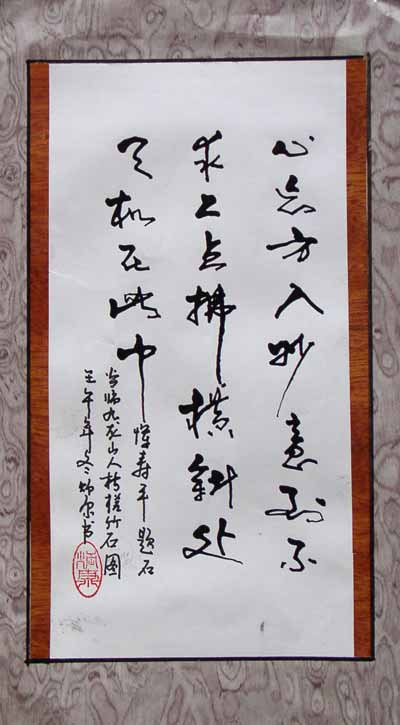 心忘方入妙意到不
求工点拂横斜处
天机在此中
恽寿平题石
谷师九龙山人槎竹石图
壬午年冬书